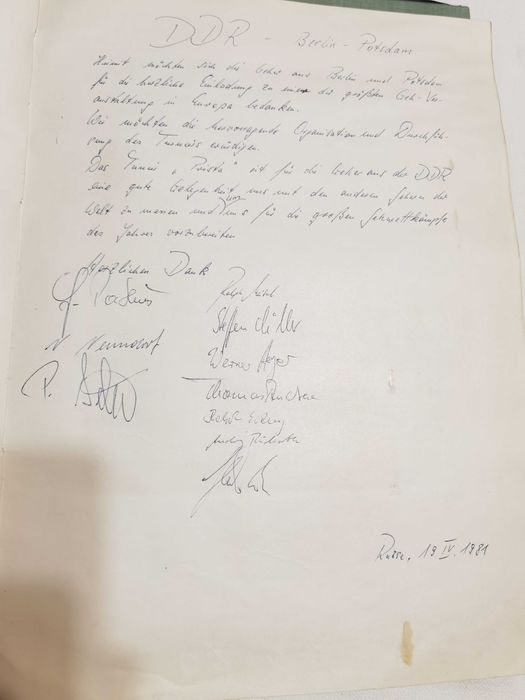 DDR - Berlin - Potsdam
Hiermit möchten sich die Geher aus Berlin und Potsdam
für die herzliche Einladung zu einer der größten Geh-Ver-
anstaltung in Europa bedanken.
Wir möchten die hervorragende Organisation und Durchfüh-
rung des Turniers würdigen.
Das Turnier "Prista" ist für die Geher aus der DDR
eine gute Gelegenheit uns mit den anderen Gehern der
Welt zu messen und uns für die großen Gehwettkämpfe
des Jahres vorzubereiten
Herzlichen Dank
Ralph
Steffen Müller
N Neumdorf
Werner Heyer
P.
Thomas
Ralph
Russe, 19 IV. 1981